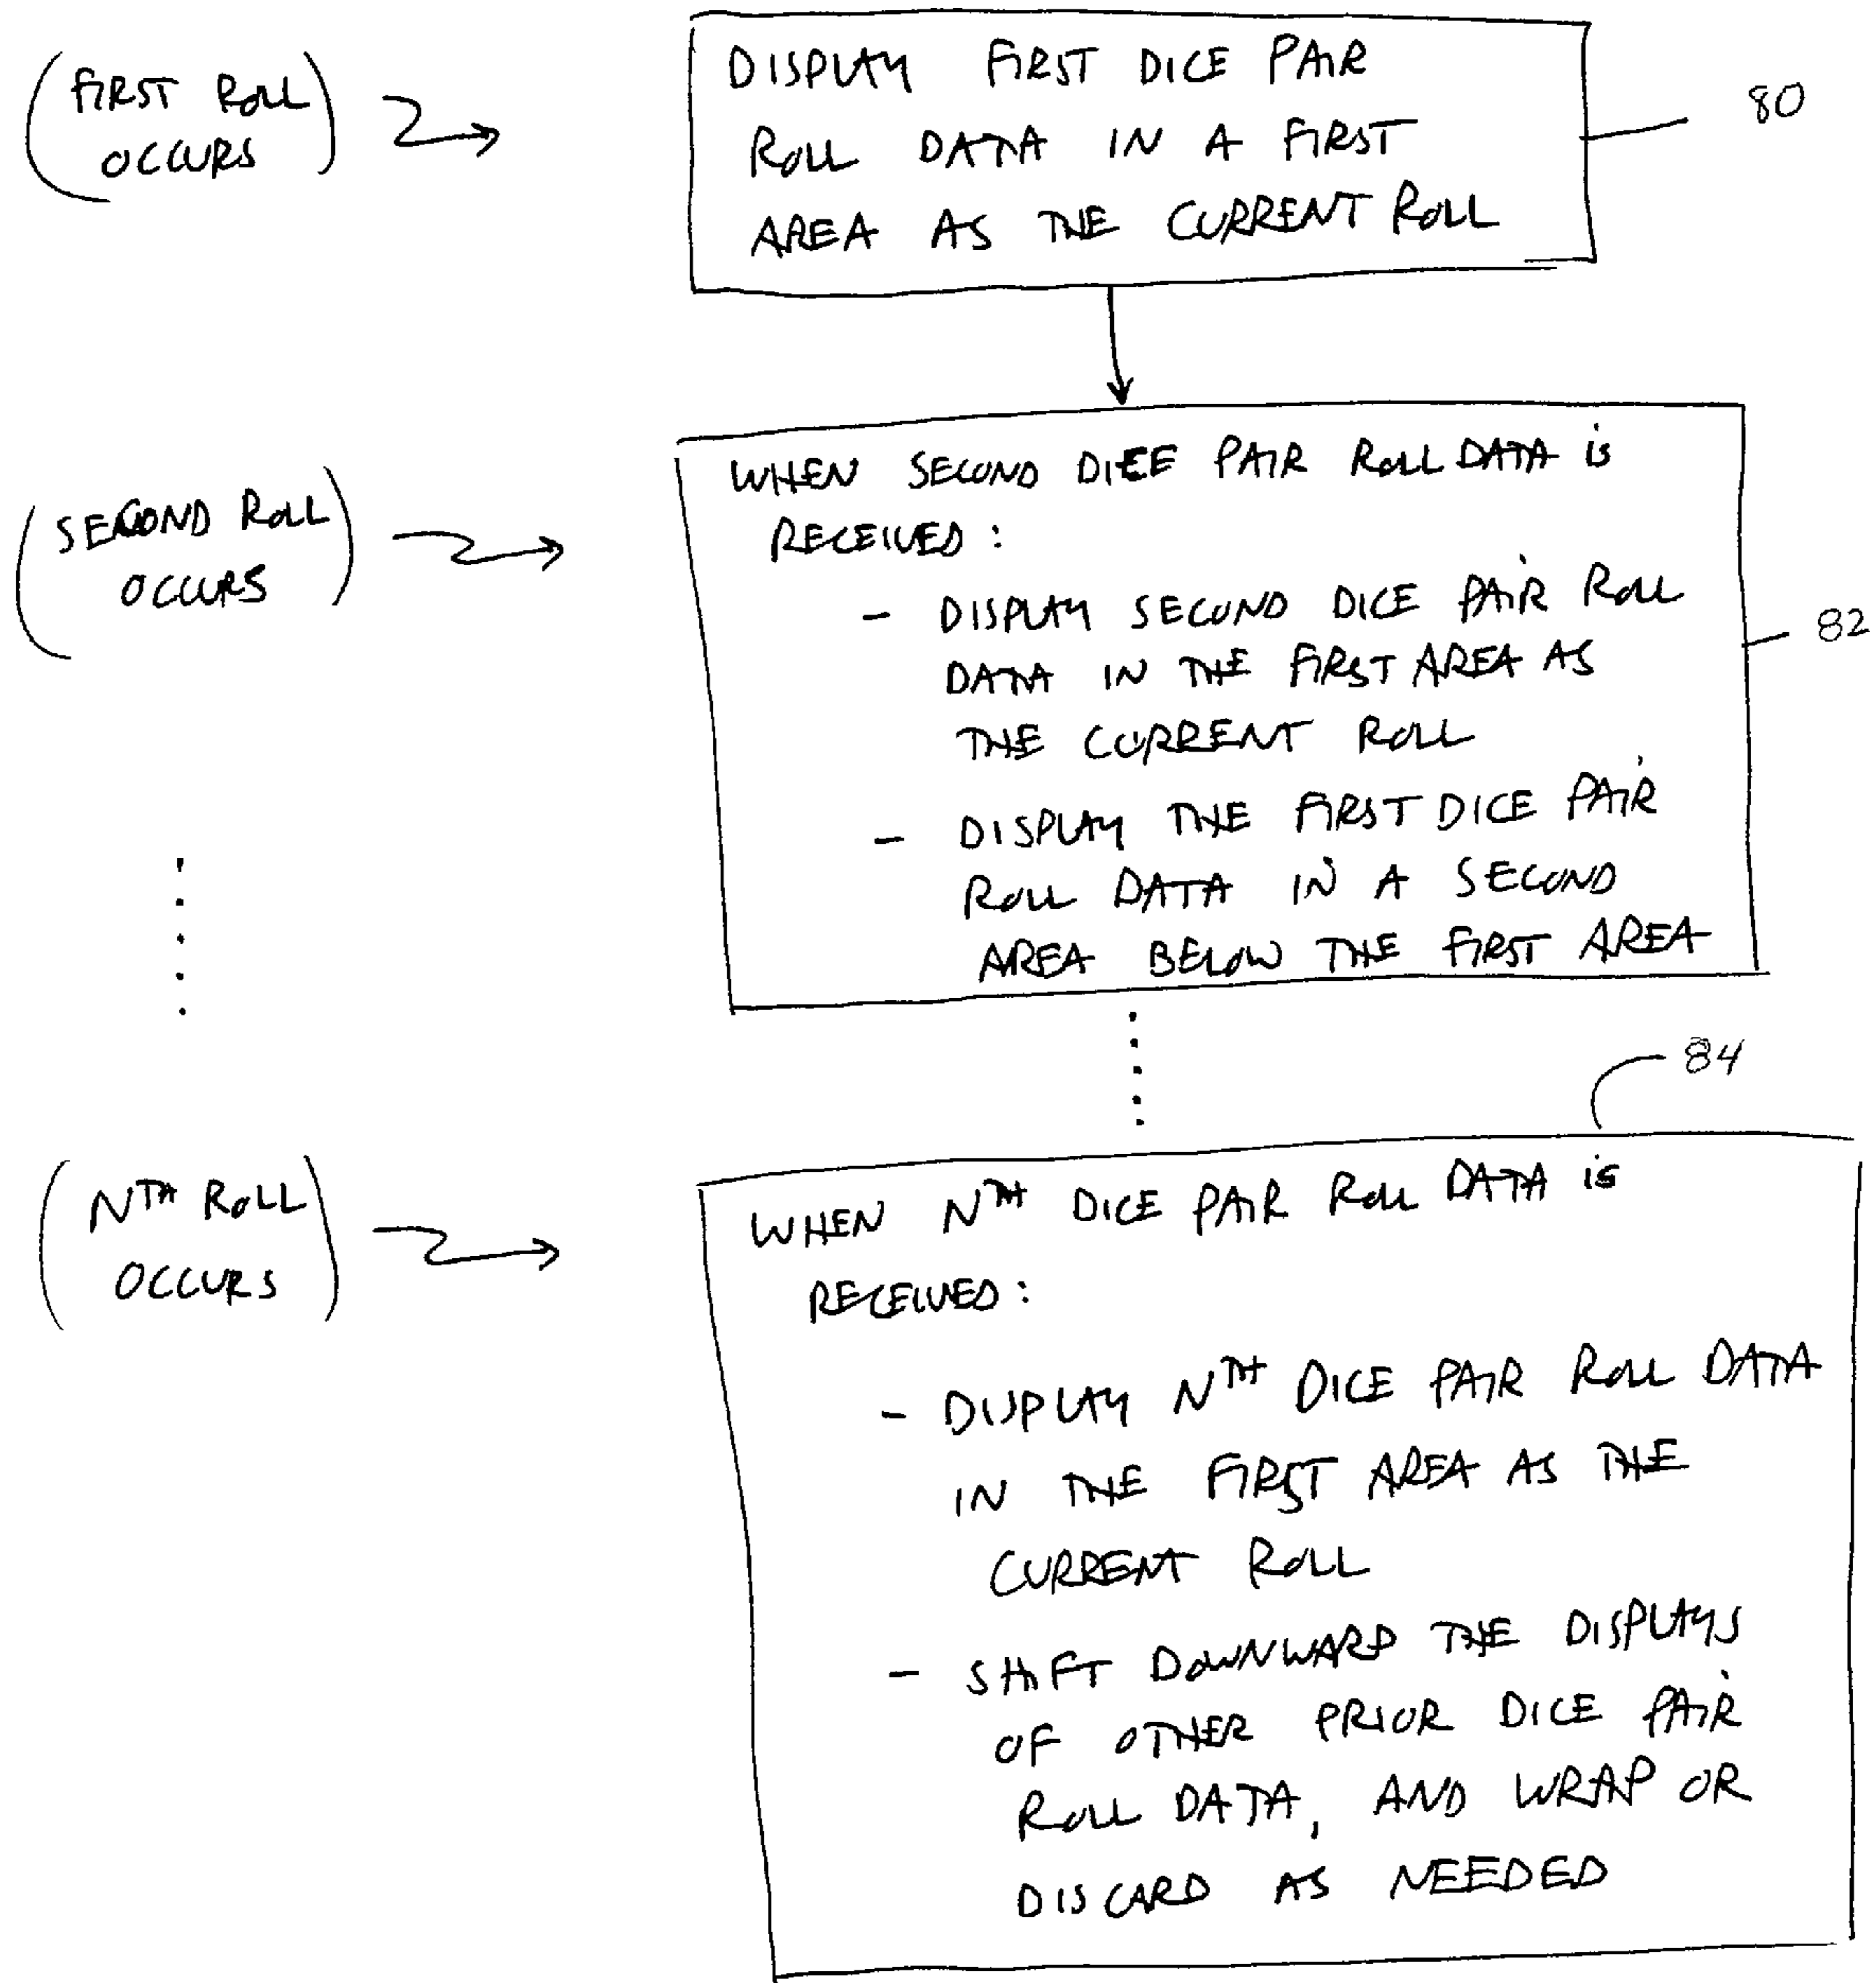 (FIRST ROLL
OCCURS)
DISPLAY FIRST DICE PAIR
ROLL DATA IN A FIRST
AREA AS THE CURRENT ROLL
80
(SECOND ROLL
OCCURS)
WHEN SECOND DICE PAIR ROLL DATA is
RECEIVED:
- DISPLAY SECOND DICE PAIR ROLL
DATA IN THE FIRST AREA AS
THE CURRENT ROLL
- DISPLAY THE FIRST DICE PAIR
ROLL DATA IN A SECOND
AREA BELOW THE FIRST AREA
82
84
(NTH ROLL
OCCURS)
WHEN NTH DICE PAIR ROLL DATA is
RECEIVED:
- DISPLAY NTH DICE PAIR ROLL DATA
IN THE FIRST AREA AS THE
CURRENT ROLL
- SHIFT DOWNWARD THE DISPLAYS
OF OTHER PRIOR DICE PAIR
ROLL DATA, AND WRAP OR
DISCARD AS NEEDED